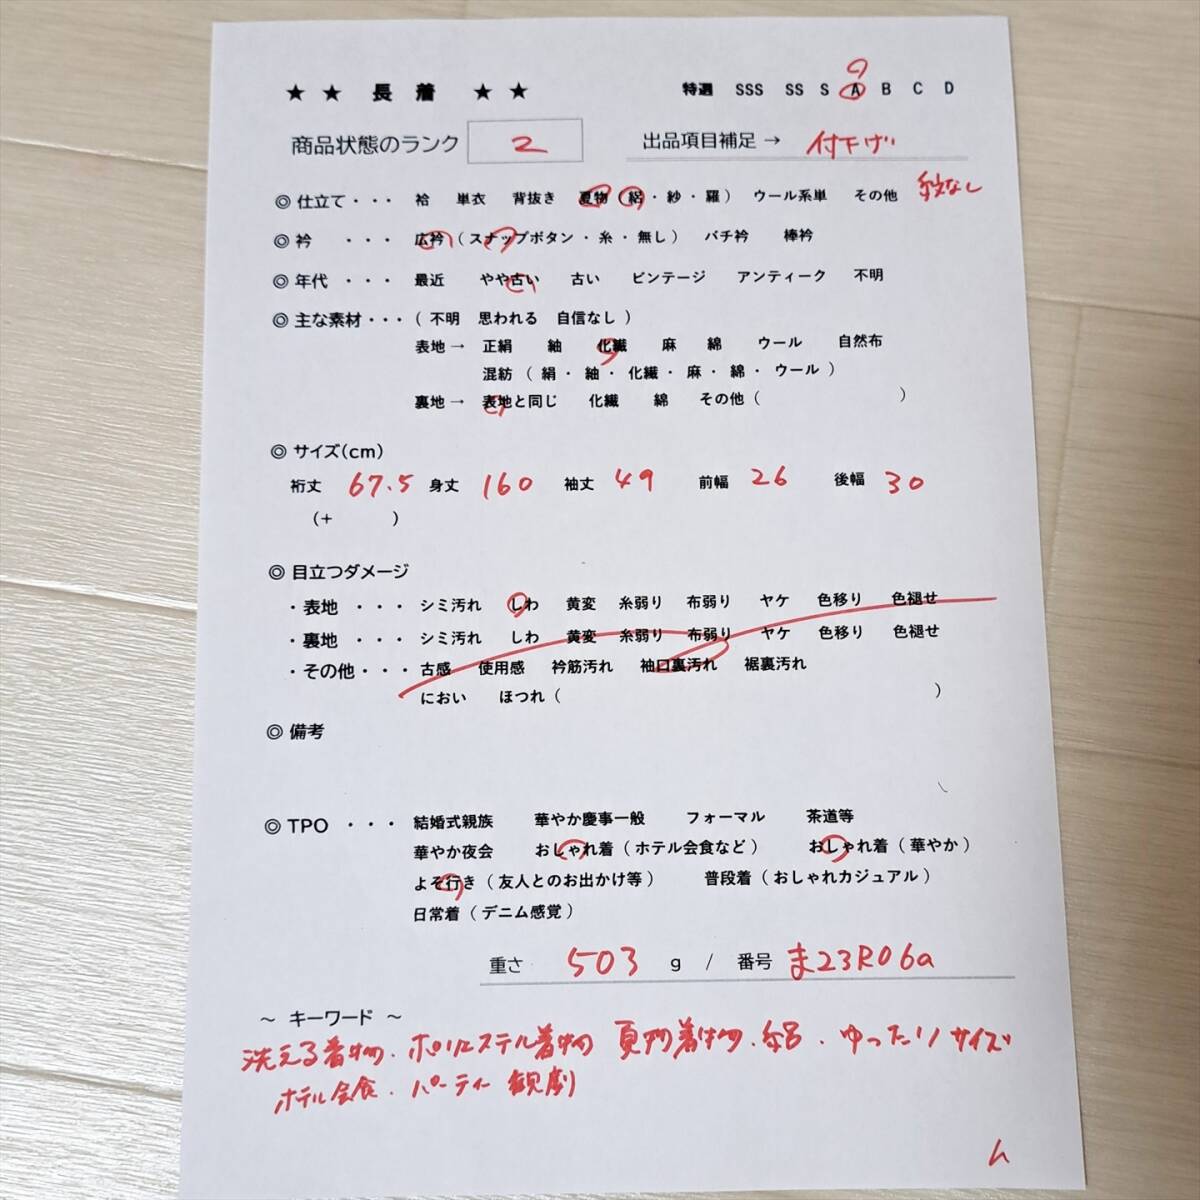 ★ ★ 長 着 ★ ★ 特選 SSS SS S A B C D
商品状態のランク 2 出品項目補足 → 付下げ
◎ 仕立て・・・ 袷 単衣 背抜き 夏物 ( 絽 ・ 紗 ・ 羅 ) ウール系単 その他 紋なし
◎ 衿 ・・・ 広衿 ( スナップボタン ・ 糸 ・ 無し ) バチ衿 棒衿
◎ 年代 ・・・ 最近 やや古い 古い ビンテージ アンティーク 不明
◎ 主な素材・・・ ( 不明 思われる 自信なし )
表地 → 正絹 紬 化繊 麻 綿 ウール 自然布
混紡 ( 絹 ・ 紬 ・ 化繊 ・ 麻 ・ 綿 ・ ウール )
裏地 → 表地と同じ 化繊 綿 その他 ( )
◎ サイズ(cm)
裄丈 67.5 身丈 160 袖丈 49 前幅 26 後幅 30
(+ )
◎ 目立つダメージ
・表地 ・・・ シミ汚れ しわ 黄変 糸弱り 布弱り ヤケ 色移り 色褪せ
・裏地 ・・・ シミ汚れ しわ 黄変 糸弱り 布弱り ヤケ 色移り 色褪せ
・その他・・・ 古感 使用感 衿筋汚れ 袖口裏汚れ 裾裏汚れ
におい ほつれ ( )
◎ 備考
◎ TPO ・・・ 結婚式親族 華やか慶事一般 フォーマル 茶道等
華やか夜会 おしゃれ着 ( ホテル会食など ) おしゃれ着 ( 華やか )
よそ行き ( 友人とのお出かけ等 ) 普段着 ( おしゃれカジュアル )
日常着 ( デニム感覚 )
重さ 503 g / 番号 ま23R06a
~ キーワード ~
洗える着物・ポリエステル着物 夏物着物・絽・ゆったりサイズ
ホテル会食・パーティー 観劇